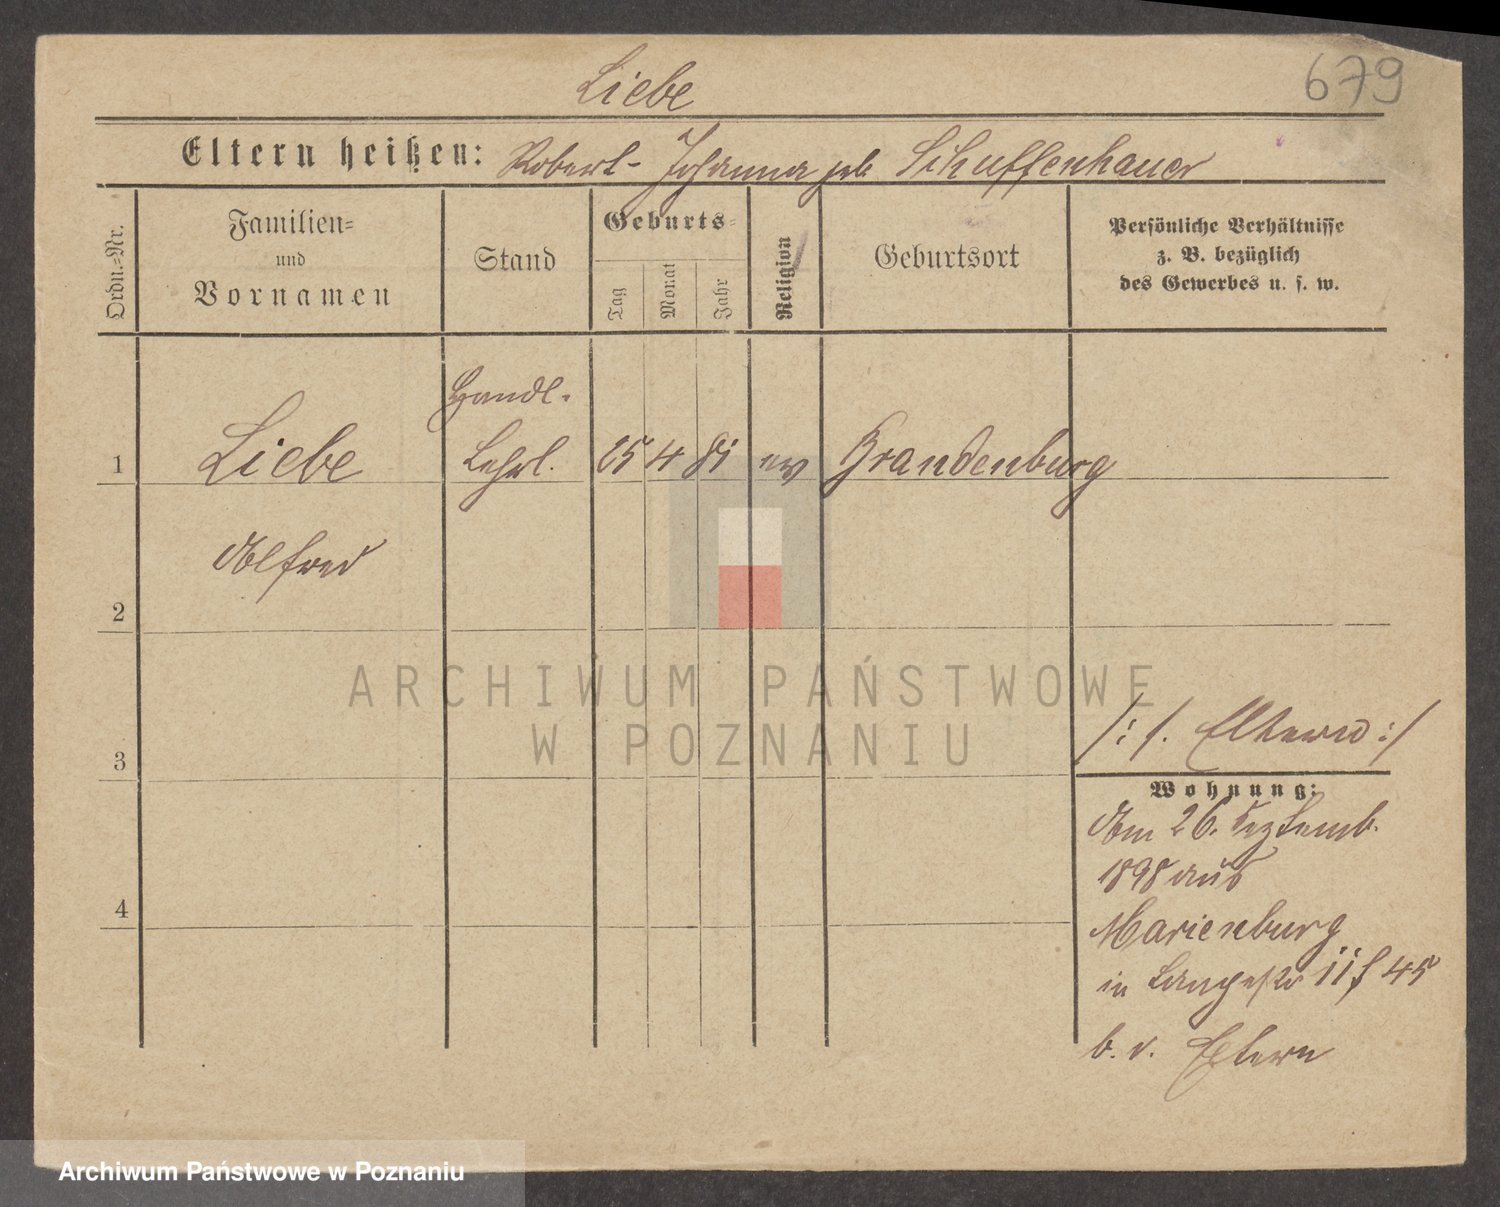 679
Liebe
Eltern heißen: Robert - Johanna geb Schuffenhauer
Ordn.-Nr.
Familien-
und
Vornamen
Stand
Geburts-
Tag
Monat
Jahr
Religion
Geburtsort
Persönliche Verhältnisse
z. B. bezüglich
des Gewerbes u. s. w.
Handl.
1 Liebe Lehrl. 25 4 81 ev Brandenburg
Alfred
2
3
4
/: s. Eltern :/
Wohnung:
Am 26. Septemb.
1898 aus
Marienburg
in Langestr 45
b. d. Eltern
ARCHIWUM PAŃSTWOWE
W POZNANIU
Archiwum Państwowe w Poznaniu